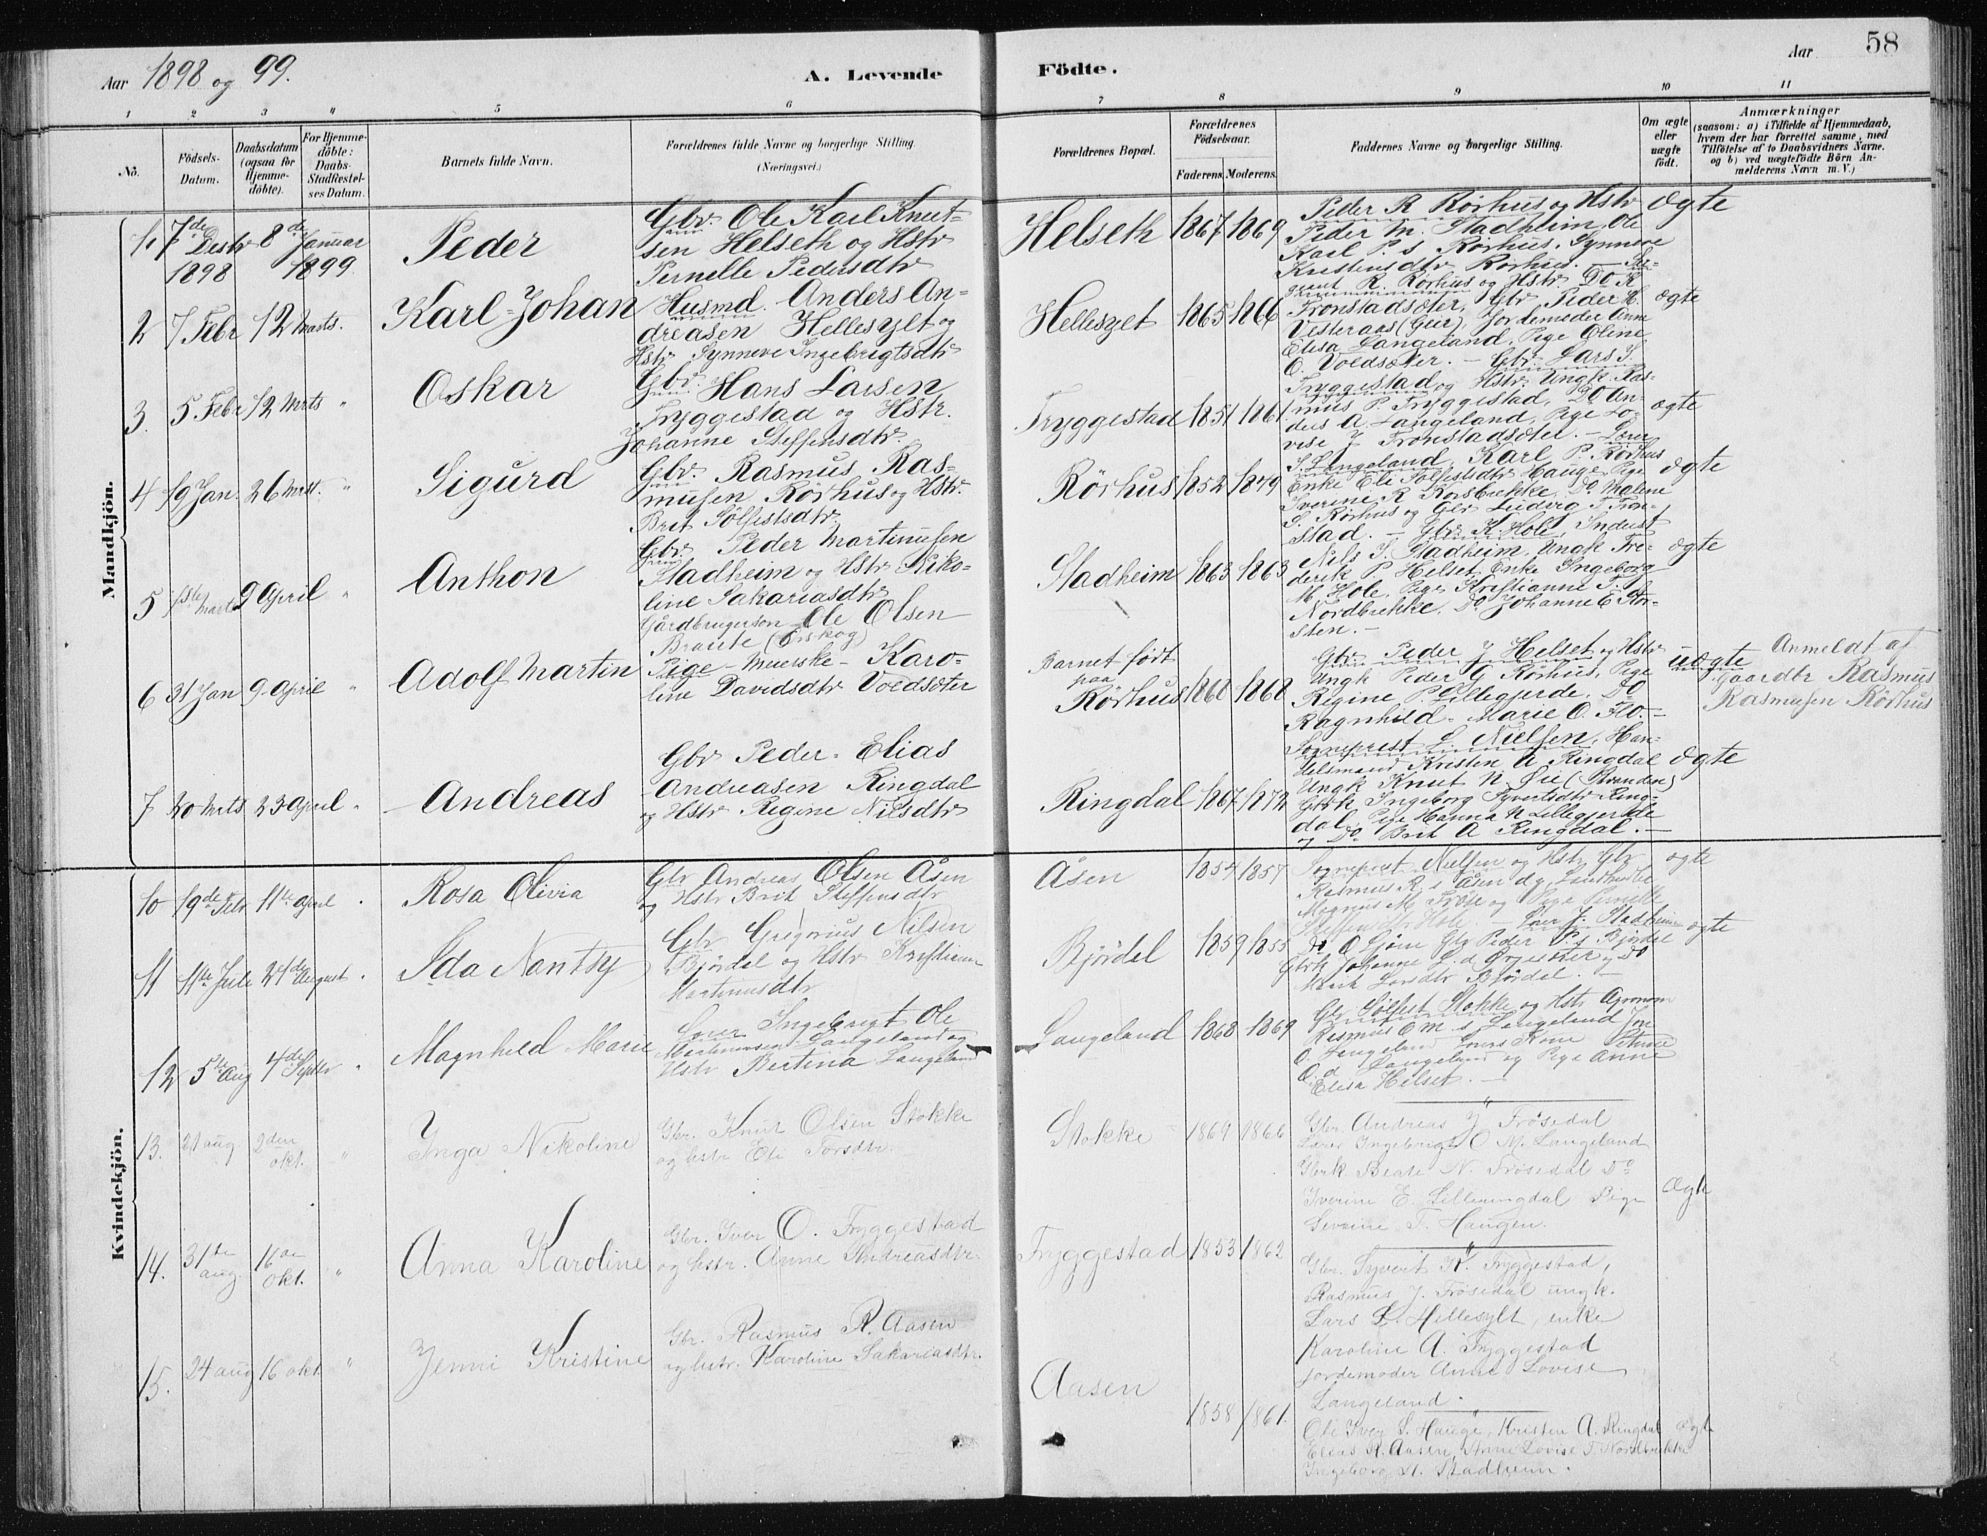 Aar 1898 og 99.
A. Levende
Födte.
Aar
58
1 2 3 4 5 6 7 8 9 10 11
No.
Födsels-
Datum.
Daabsdatum
(ogsaa for
Hjemme-
döbte).
For Hjemme-
döbte:
Daabs-
Stadfestel-
ses Datum.
Barnets fulde Navn.
Forældrenes fulde Navne og borgerlige Stilling.
(Næringsvei.)
Forældrenes Bopæl.
Forældrenes
Födselsaar.
Faderens. Moderens.
Faddernes Navne og borgerlige Stilling.
Om ægte
eller
uægte
födt.
Anmærkninger
(saasom: a) i Tilfælde af Hjemmedaab,
hvem der har forrettet samme, med
Tilföielse af to Daabsvidners Navne.
og b) ved uægtefödte Börn An-
melderens Navn m. V.)
Mandkjön.
1. 7de Decbr 1898 8de Januar 1899
Peder
Gbr. Ole Karl Knut-
sen Helseth og Hstr
Pernelle Pedersdtr
Helseth 1867 1869
Peder R Rörhus og Hstr
Peder M. Stadheim, Ole
Karl P. s. Rörhus, Synneve
Kristensdtr Rörhus. —
ægte
2 7 Febr 12 Marts.
Karl-Johan
Husmd. Anders An-
dreasen Hellesylt og
Hstr Synneve Ingebrigtsdtr
Hellesylt 1865 1866
R. Rörhus og Hstr Do K
Tronstadsæter, Gbr Peder K.
Vesteraas (Geir), Jordemoder Anne
Elisa Langeland, Pige Oline
O. Voldsæter. —
ægte
3. 5 Febr 12 Mrts "
Oskar
Gbr. Hans Larsen
Tryggestad og Hstr.
Johanne Steffensdtr.
Tryggestad 1851 1861
Gbr Lars S.
Tryggestad og Hstr Ungk. Ras-
mus P. Tryggestad, Do An-
ders A. Langeland, Pige Lo-
vise J Tronstadsæter. —
ægte
4 19 Jan. 26 Mrst. "
Sigurd
Gbr. Rasmus Ras-
musen Rörhus og Hstr.
Brit Sölfestsdtr.
Rörhus 1852 1849
Lærer
S. Langeland, Karl P. Rörhus
Enke Eli Sölfestdtr Hauge, Pige
Iverine R Korsbrekke, Do Malene
S. Rörhus og Gbr Ludvig T. Tron-
stad. —
ægte
5 Marts 9 April "
Anthon
Gbr. Peder Martinusen
Stadheim og Hstr Niko-
line Sakariasdtr
Stadheim 1863 1863
Gbr. K. Hole, Indust
Nils J. Stadheim, Ungk Fre-
derik P. Helset, Enke Ingeborg
M. Hole, Pige Kristianne T. d
Nordbrekke, Do Johanne E Stor-
sten. —
ægte
6 31 Jan 9. April "
Adolf Martin
Gårdbrugersøn Ole Olsen
Braute (Örskog)
Pige - Meierske - Karo-
line Davidsdtr Voldsæter
Barnet født
paa
Rörhus 1868 1868
Gbr Peder J Helset, og Hstr
Ungk Peder G Rörhus, Pige
Regine P. Lillegjerde. Do
Ragnhild - Marie O. Flo. —
uægte
Anmeldt af
Gaardbr Rasmus
Rasmusen Rörhus
7 20 Mrts 23 April "
Andreas
Gbr Peder - Elias
Andreasen Ringdal
og Hstr Regine Nilsdtr
Ringdal 1867 1872
Sogneprest L Nielsen, Han-
delsmand Kristen A Ringdal
Ungk Knut N. Øie (Stranden)
Gbrk Ingeborg Syvertsdtr Ring-
dal, Pige Hanna N Lillegjerde
og Do Brit A Ringdal. —
ægte
Kvindekjön.
10 19de Febr 11te April
Rosa Olivia
Gbr Andreas Olsen Åsen
og Hstr Brit Steffensdtr
Åsen 1854 1857
Sogneprest Nielsen og Hstr, Gbr
Rasmus R. s Åsen
Magnus M og Pige Pernille
Hole —
ægte
11 11te Juli 27de August
Ida Nantsy
Gbr Gregorius Nilsen
Björdal og Hstr Kristianne
Martinusdtr
Björdal 1859 1855
Lærer J. Stadheim
Gbr Peder P. s Björdal
Gbrk Johanne og Do
Marit Larsdtr Björdal. —
ægte
12 5te Aug 4de Septbr
Magnhild Marie
Lærer Ingebrigt Ole
Martinussen Langeland og
Hstr Bertina Langeland
Langeland 1868 1869
Gbr Sölfest Stokke og Hstr Agronom
Rasmus O M s Langeland
O. Langeland, Lærers Kone Petrine
O. d Langeland og Pige Anne
Elisa Helset. —
13. 21 aug 2den okt. "
Inga Nikoline
Gbr. Knut Olsen Stokke
og hstr Eli Torsdtr.
Stokke 1869 1866
Gbr. Andreas J Frösedal
Lærer Ingebrigt O. M. Langeland
Gbrk Beate N. Frösedal Do
Iverine E. Lilleringdal Pige
Severine T. Haugen.
Ægte
14. 31te aug. 16de okt. "
Anna Karoline
Gbr. Iver O. Tryggestad
og hstr. Anne Andreasdtr.
Tryggestad 1853 1862
Gbr. Syvert K. Tryggestad,
Rasmus J. Frösedal ungk.
Lars L. Hellesylt, enke
Karoline A. Tryggestad
jordemoder Anne Lovise
Langeland.
15. 24 aug 16 okt "
Jenni Kristine
Gbr. Rasmus R. Aasen
og hstr. Karoline Sakariasdtr.
Aasen 1858 1861.
Ole Iver S. Hauge, Kristen A. Ringdal
Elias R. Aasen, Anne Lovise T Nordbrekke
Ingeborg A. Stadheim.
Ægte